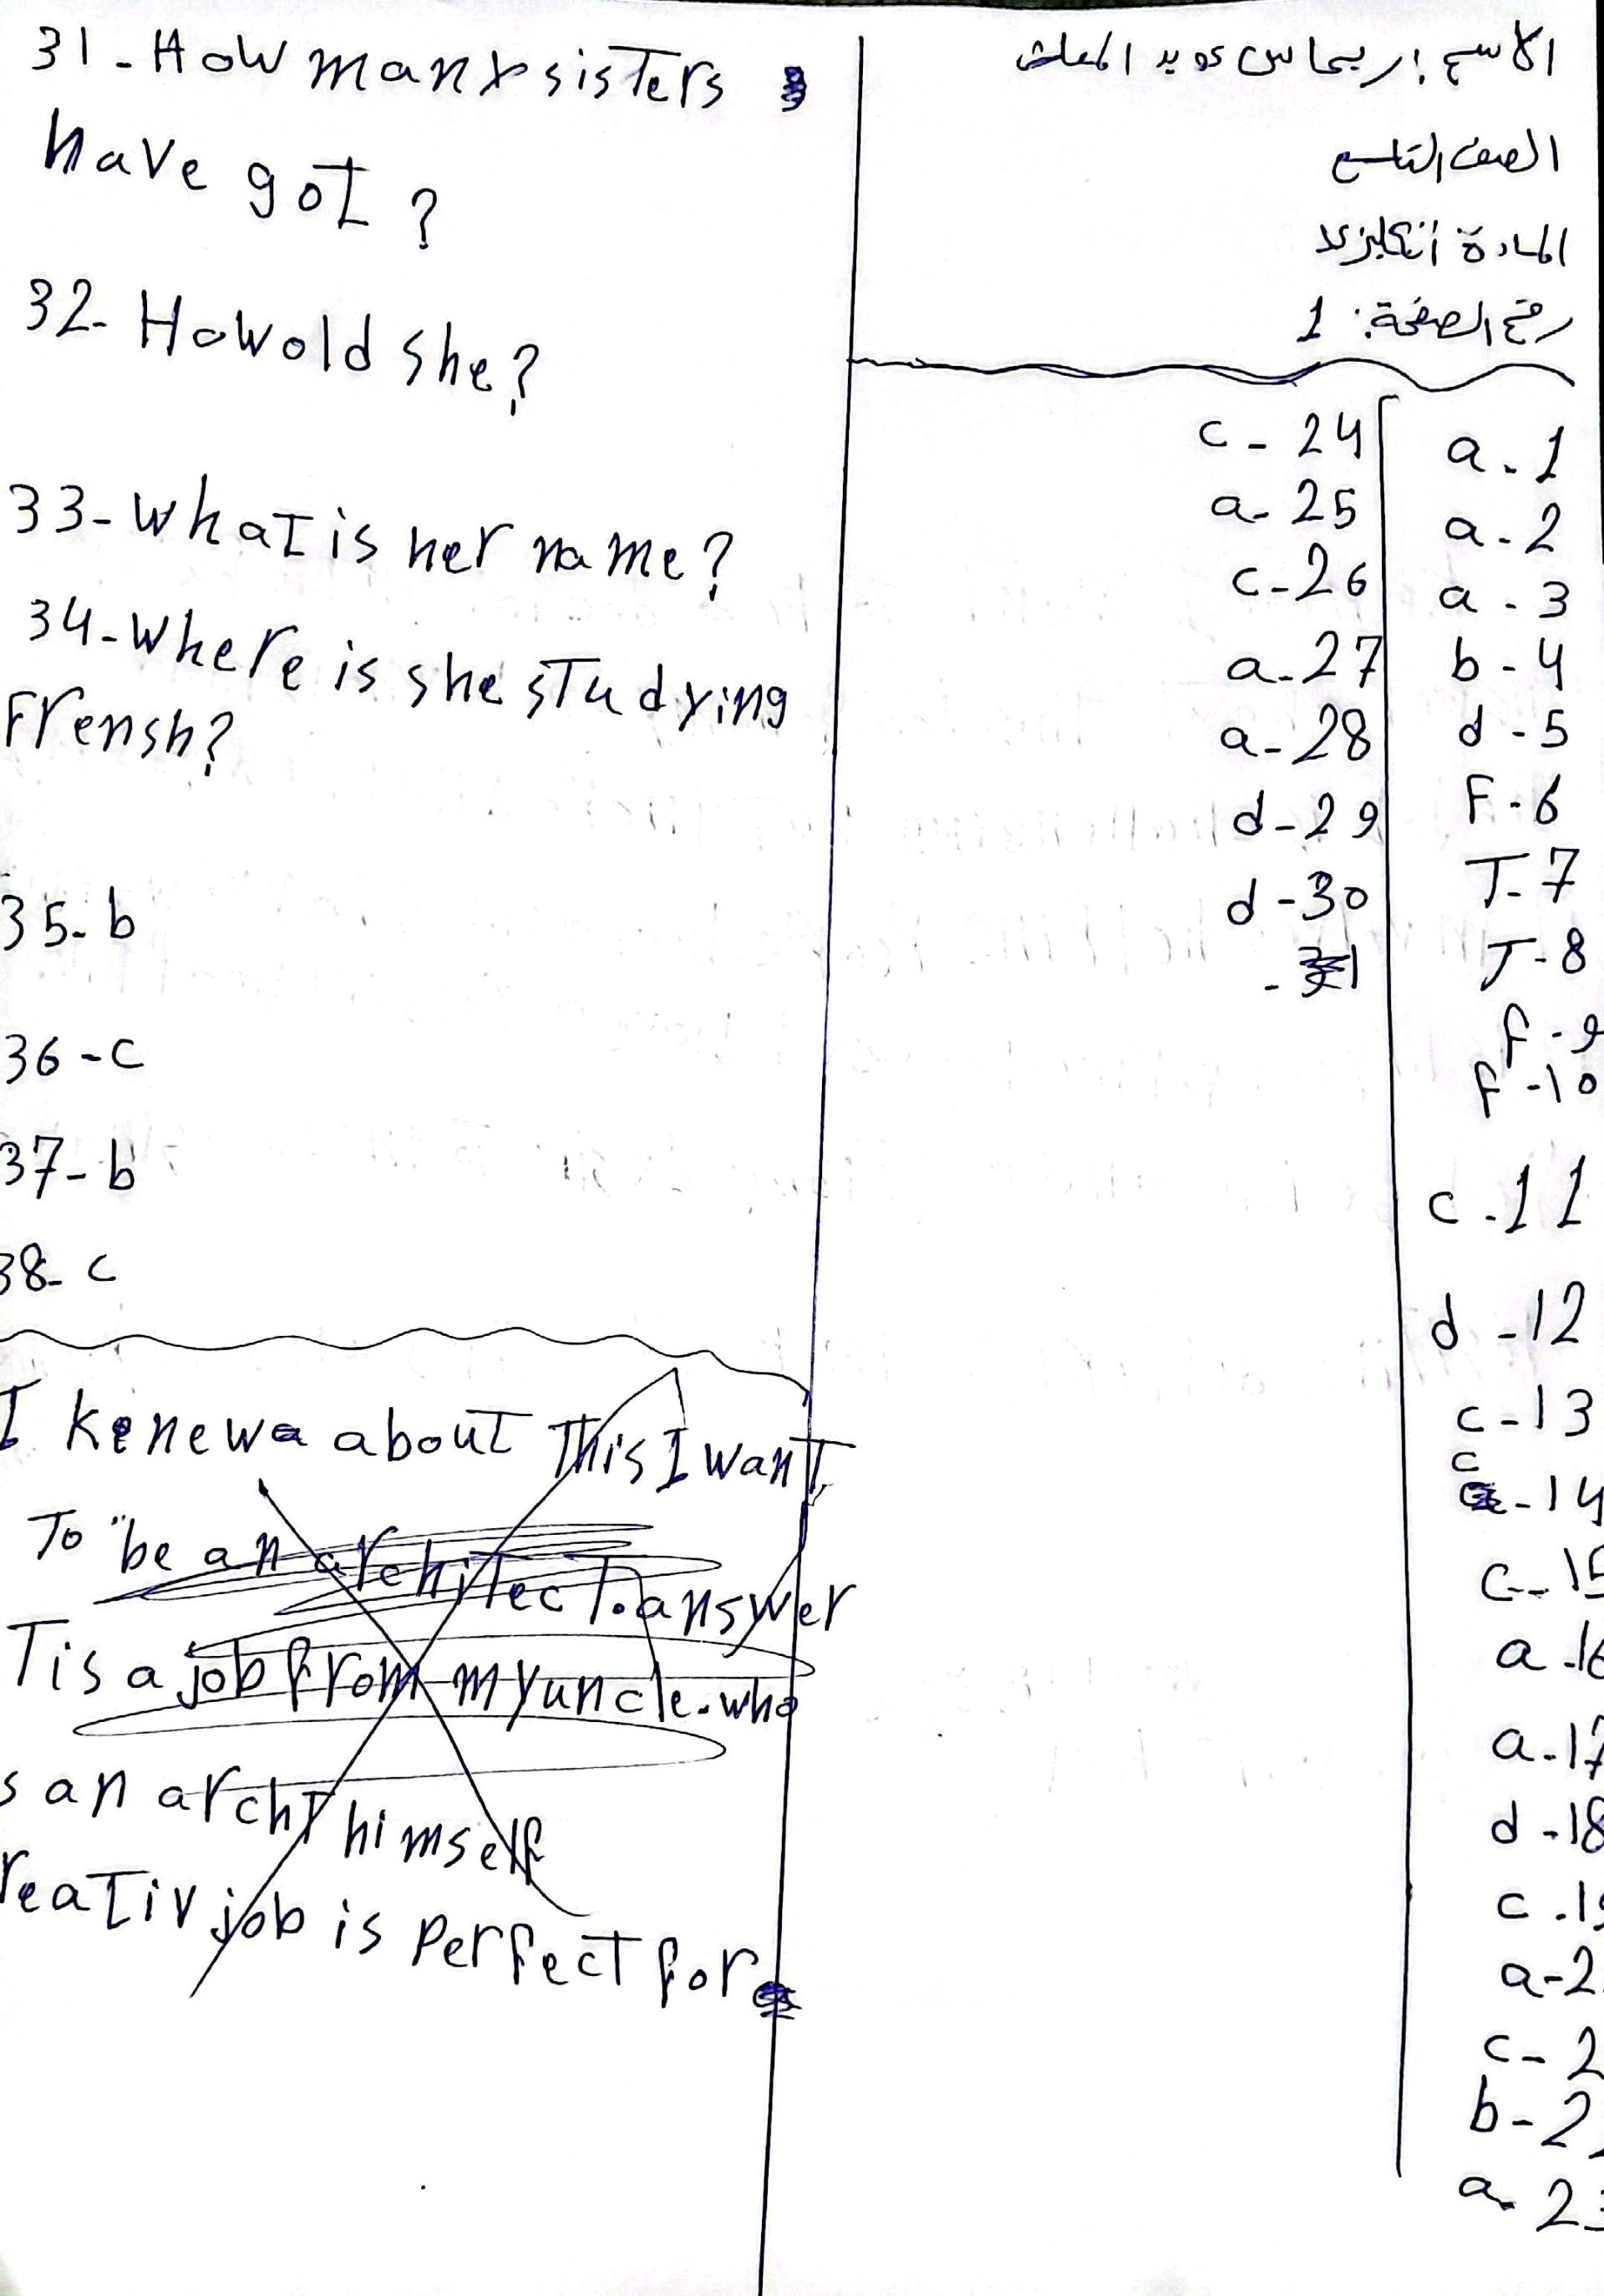 الاسم: ريماس
الصف التاسع
المادة انكليزي
رقم الصفحة: 1
a - 1
a - 2
a - 3
b - 4
d - 5
F - 6
T - 7
T - 8
F - 9
F - 10
c - 11
d - 12
c - 13
c - 14
c - 15
a - 16
a - 17
d - 18
c - 19
a - 2
c - 2
b - 2
a - 23
c - 24
a - 25
c - 26
a - 27
a - 28
d - 29
d - 30
31 - How many sisters
have got ?
32 - How old she?
33 - What is her name?
34 - Where is she studying
Frensh?
35 - b
36 - c
37 - b
38 - c
I about This I want
To be an architect. answer
T is a job from my uncle. who
s an archT himself
reativ job is Perfect for